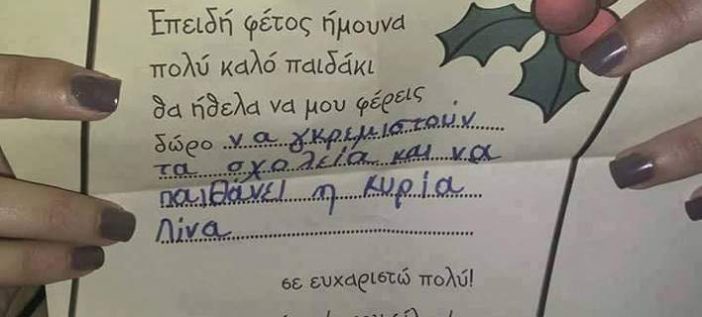 Επειδή φέτος ήμουνα
πολύ καλό παιδάκι
θα ήθελα να μου φέρεις
δώρο να γκρεμιστούν
τα σχολεία και να
παιθάνει η κυρία
Λίνα
σε ευχαριστώ πολύ!